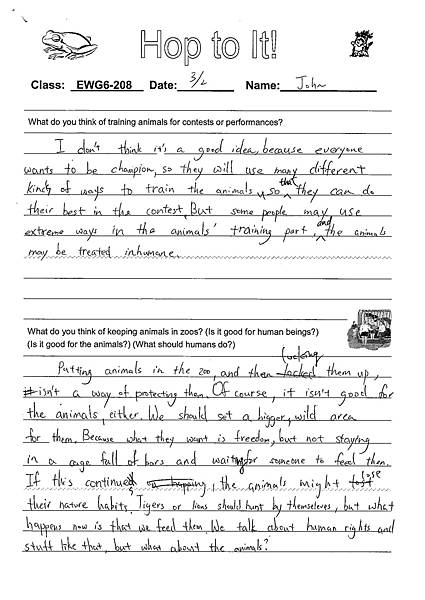 Hop to It!
Class: EWG6-208 Date: 3/2 Name: John
What do you think of training animals for contests or performances?
I don't think it's a good idea, because everyone
wants to be champion, so they will use many different
kinds of ways to train the animals, so that they can do
their best in the contest. But some people may use
extreme ways in the animals' training part, and the animals
may be treated inhumane.
What do you think of keeping animals in zoos? (Is it good for human beings?)
(Is it good for the animals?) (What should humans do?)
Putting animals in the zoo, and then locking them up,
isn't a way of protecting them. Of course, it isn't good for
the animals, either. We should set a bigger, wild area
for them. Because what they want is freedom, but not staying
in a cage full of bars and waiting for someone to feed them.
If this continues, the animals might lose
their nature habits. Tigers or lions should hunt by themselves, but what
happens now is that we feed them. We talk about human rights and
stuff like that, but what about the animals?